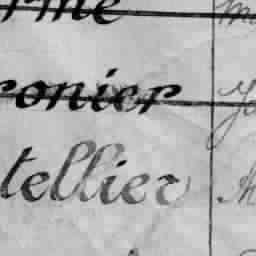 rme
ronier
tellier